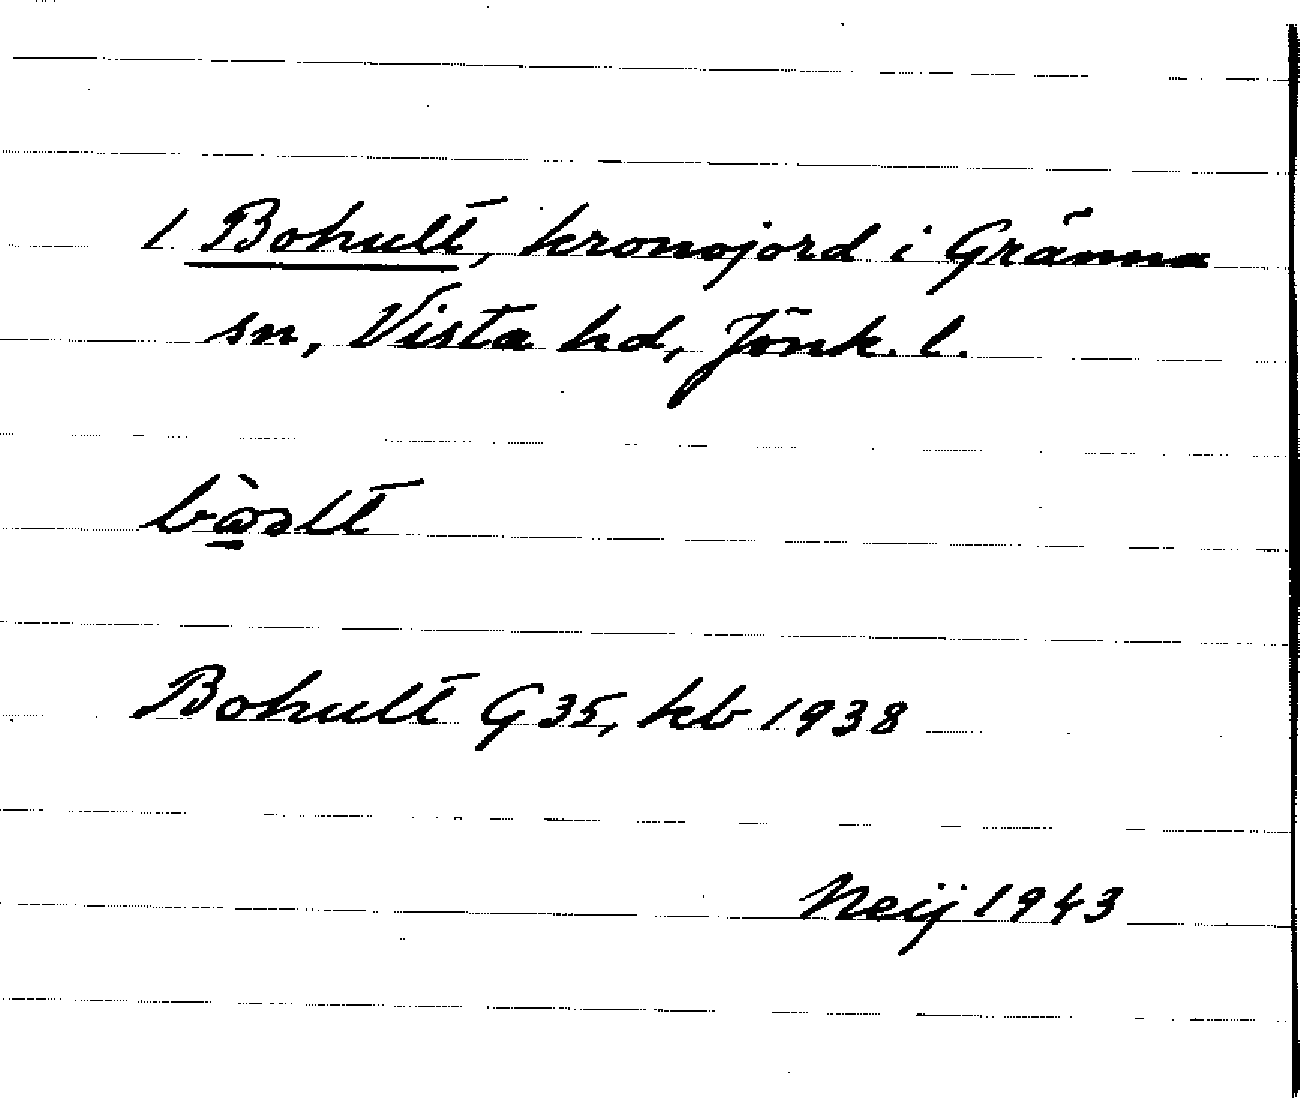 1 Bohult, kronojord i Gränna
sn, Vista hd, Jönk. l.
Bohult G 35, kb 1938
Neij 1943